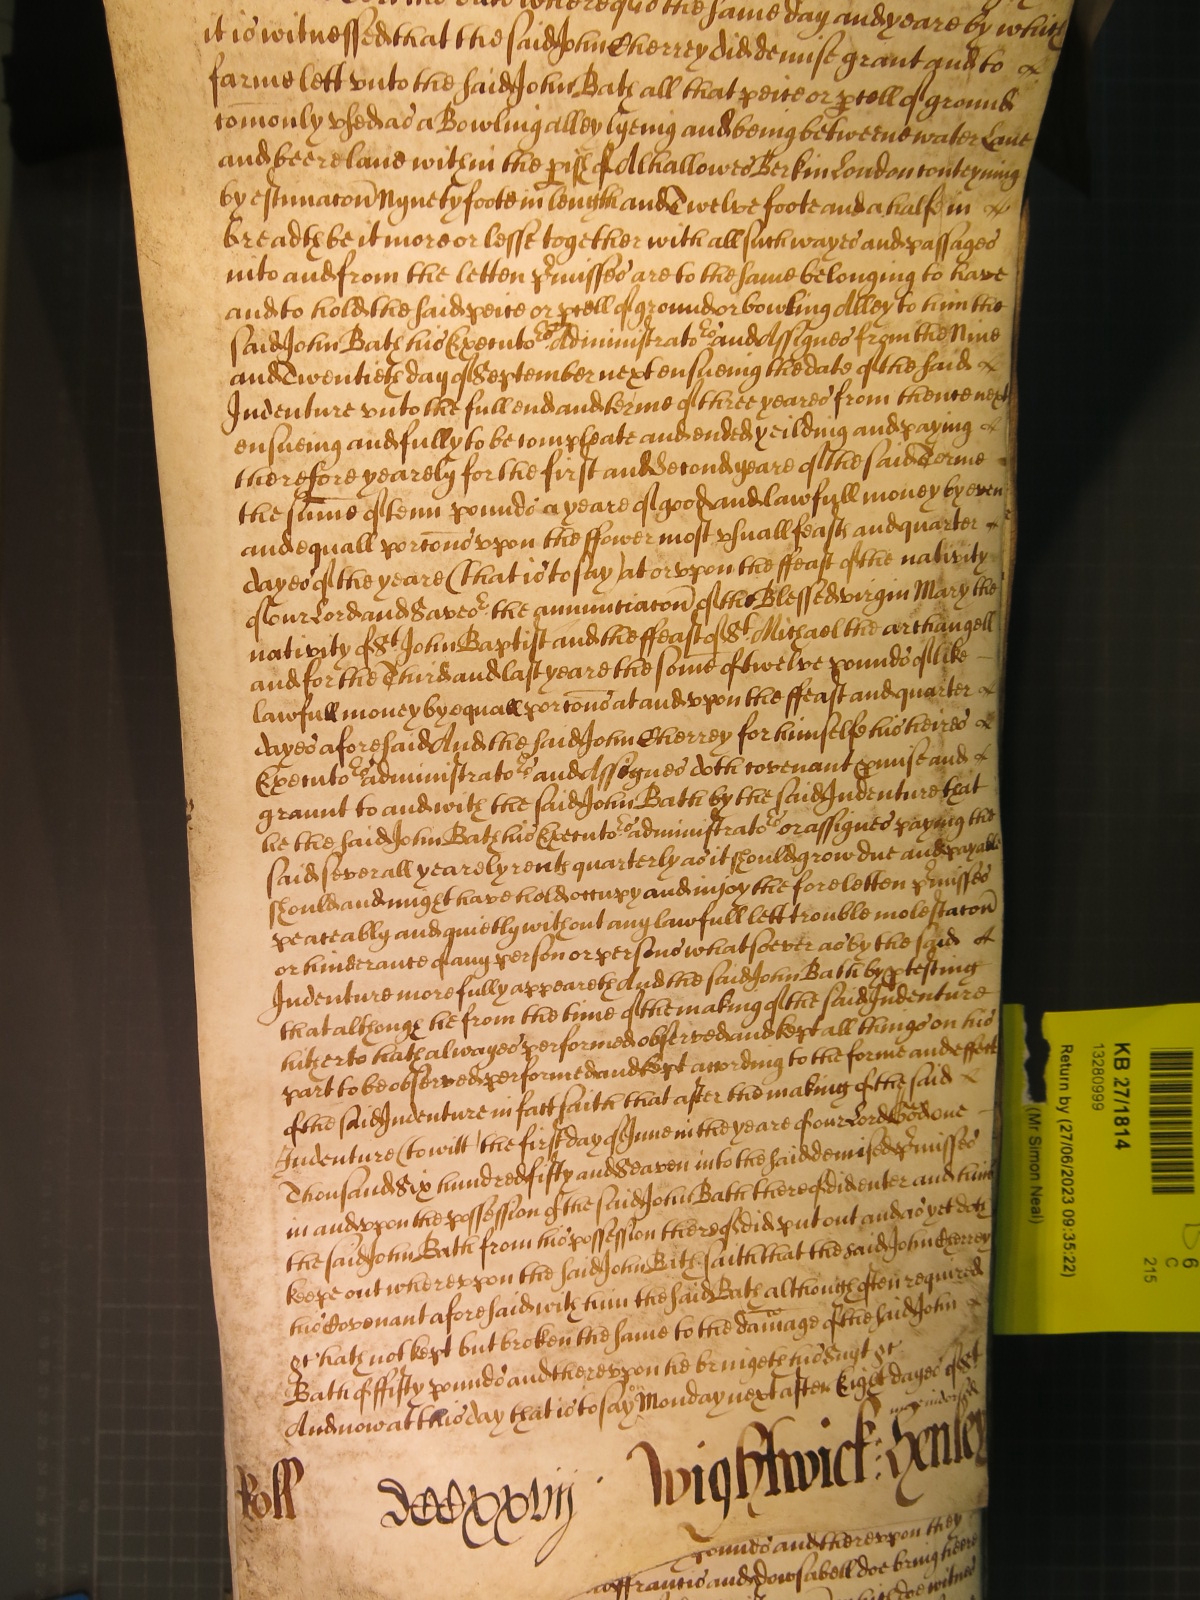 the same day and yeare by which
it is witnessed that the said John Cherrey did demise grant and to
farme lett vnto the said John Bath all that peice or pcell of ground
comonly vsed as a Bowling alley lyeing and being betweene water Lane
and beere lane within the pish of Alhallowes Berkin London conteyning
by estimacon Nynety foote in length and Twelve foote and a halfe in
breadth be it more or lesse together with all such wayes and passages
into and from the letten pmisses are to the same belonging to have
and to hold the said peice or pcell of ground or bowling Alley to him the
said John Bath his Executors Administrators and Assignes from the Nine
and Twentieth day of September next ensueing the date of the said
Indenture vnto the full end and terme of three yeares from thence next
ensueing and fully to be compleate and ended yeilding and paying
therefore yearely for the first and Second yeare of the said Terme
the sume of tenn pounds a yeare of good and lawfull money by even
and equall porcons vpon the ffower most vsuall feasts and quarter
dayes of the yeare (that is to say) at or vpon the ffeast of the nativity
of our Lord and Saveor the annunciacon of the Blessed virgin Mary the
nativity of St John Baptist and the ffeast of St Michael the archangell
and for the Third and last yeare the some of twelve pounds of like
lawfull money by equall porcons at and vpon the ffeast and quarter
dayes aforesaid And the said John Cherrey for himselfe his heires
Executors administrators and Assignes doth covenant pmise and
graunt to and with the said John Bath by the said Indenture that
he the said John Bath his Executors administrators or assignes paying the
said severall yearely rents quarterly as it should grow due and payable
should and might have hold occupy and injoy the foreletten pmisses
peaceably and quietly without any lawfull lett trouble molestacon
or hinderance of any person or persons whatsoever as by the said
Indenture more fully appeareth And the said John Bath by ptesting
that although he from the time of the making of the said Indenture
hitherto hath alwayes performed observed and kept all things on his
part to be observed performed and kept according to the forme and effect
of the said Indenture in fact saith that after the making of the said
Indenture (to witt) the first day of June in the yeare of our Lord God one
Thousand Six hundred fifty and Seaven into the said demised pmisses
in and vpon the possession of the said John Bath thereof did enter and him
the said John Bath from his possession thereof did put out and as yet doth
keepe out wherevpon the said John Bath saith that the said John Cherrey
his Covenant aforesaid with him the said Bath although often required
&c hath not kept but broken the same to the damage of the said John
Bath of ffifty pounds and therevpon he bringeth his Suyt &c
And now at this day that is to say on Monday next after Eight dayes of St
Roll dcccxxvij Wightwick: Henley
pounds and therevpon they
ffrancis and Dowsabell doe bring heere
doe witnes
KB 27/1814
13280999
Return by (27/06/2023 09:35:22)
(Mr Simon Neal)
6
C
215